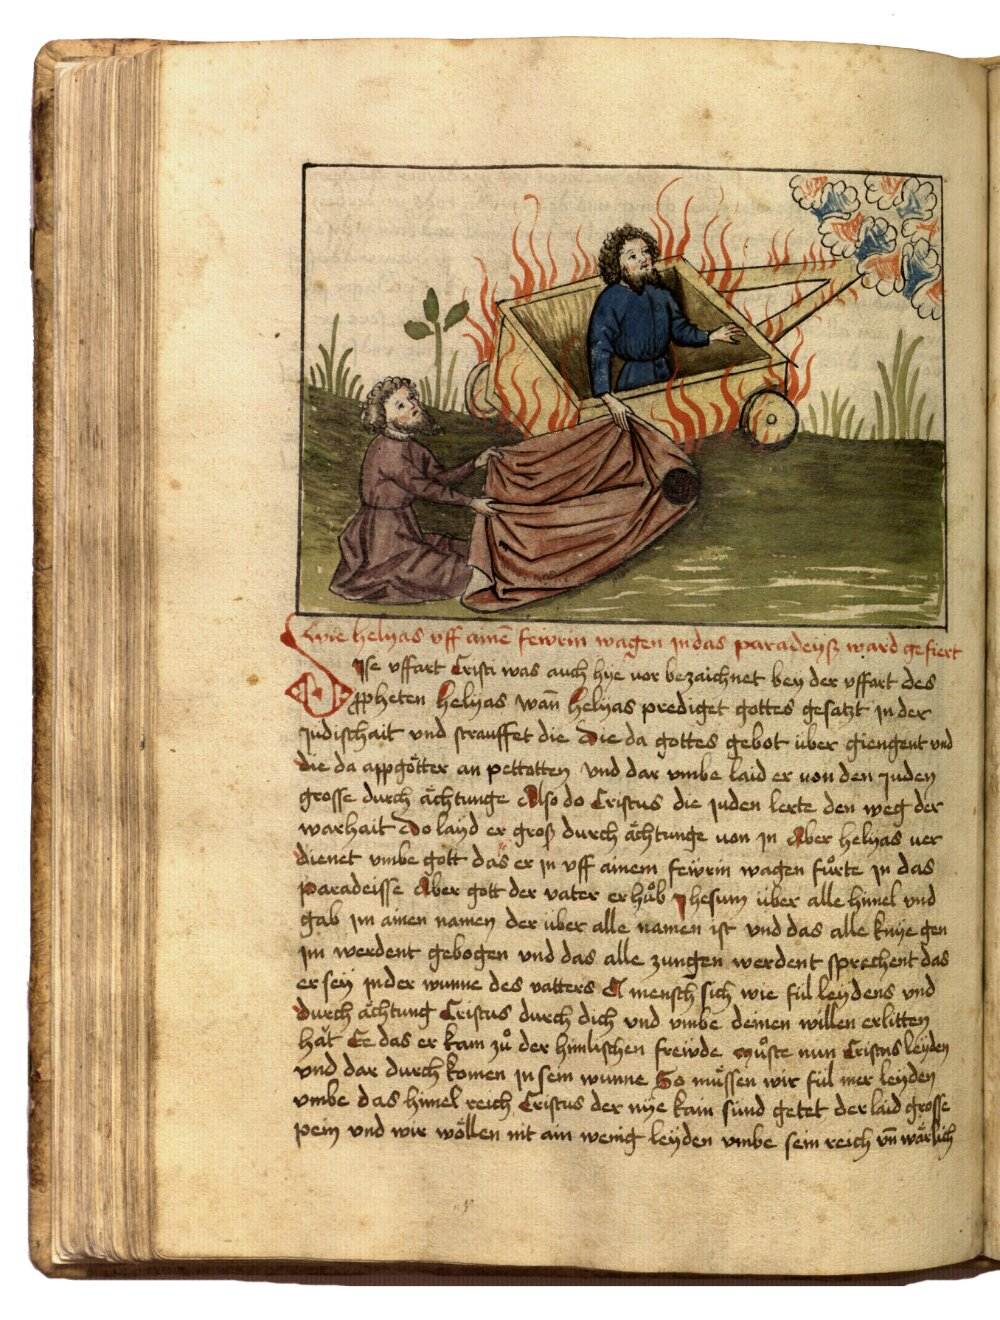 Wie helyas vff ainē fewrin wagen jn das paradeyß ward gefiert
Dise vffart Cristi was auch hye vor bezaichnet bey der vffart des
ppheten helyas wañ helyas prediget gottes gesatzt jn der
judischait vnd strauffet die Die da gottes gebot über giengent vnd
die da appgötter an pettotten vnd dar vmbe laid er von den juden
grosse durch ächtunge Also do Cristus die juden lerte den weg der
warhait Do layd er groß durch ächtunge von jn Aber helyas ver
dienet vmbe gott das er jn vff ainem fewrin wagen fuͦrte jn das
paradeisse Aber gott der vater er huͦb Jhesum über alle himel vnd
gab jm ainen namen der über alle namen ist vnd das alle knÿe gen
jm werdent gebogen vnd das alle zungen werdent sprechent das
er seÿ jn der wunne des vatters O mensch sich wie fil leydens vnd
durch ächtung Cristus durch dich vnd vmbe deinen willen erlitten
hät Ee das er kam zuͦ der himlischen freẅde muͦste nun Cristus leyden
vnd dar durch komen jn sein wunne So müssen wir fil mer leyden
vmbe das himel reich Cristus der nÿe kain sünd getet der laid grosse
pein vnd wir wöllen nit ain wenig leyden vmbe sein reich vñ wärlich